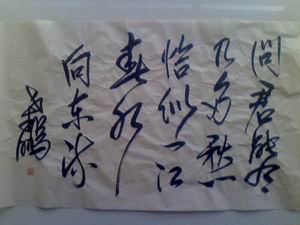 问君能有
几多愁
恰似一江
春水
向东流